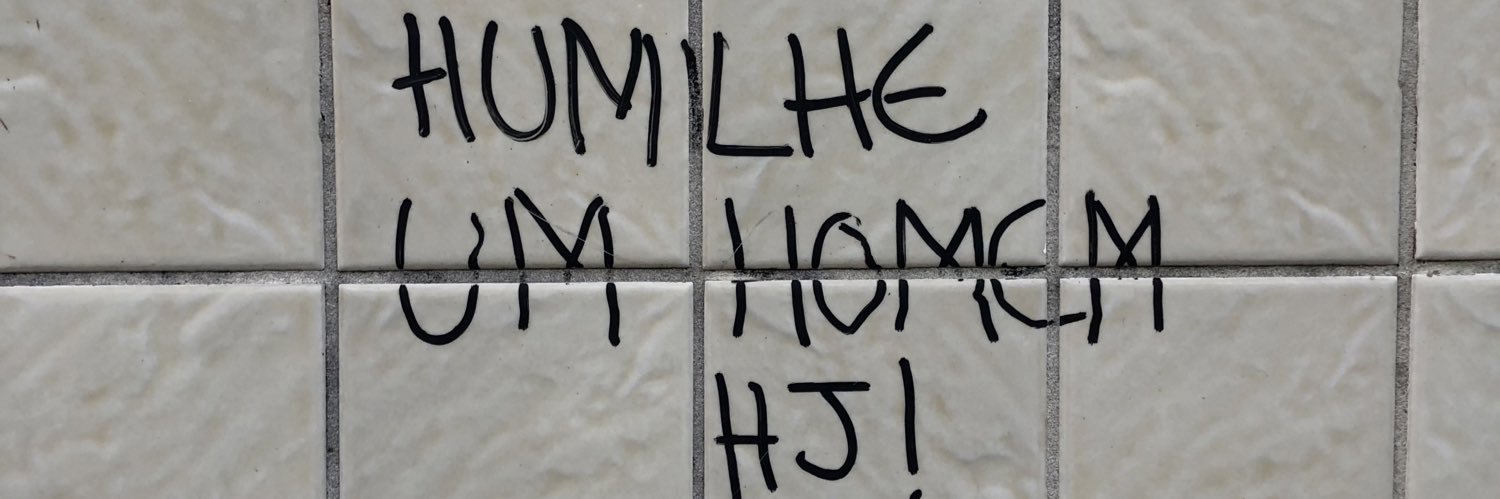 HUMILHE
UM HOMEM
HJ!